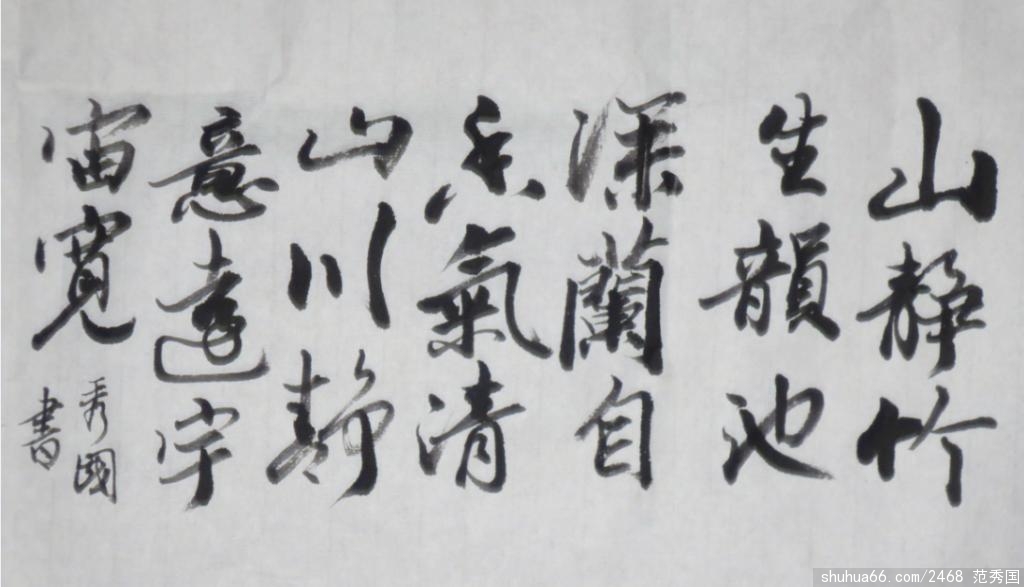 山静竹
生韻池
深蘭自
香氣清
山川静
意遠宇
宙寛
秀國
書
shuhua66.com/2468 范秀国